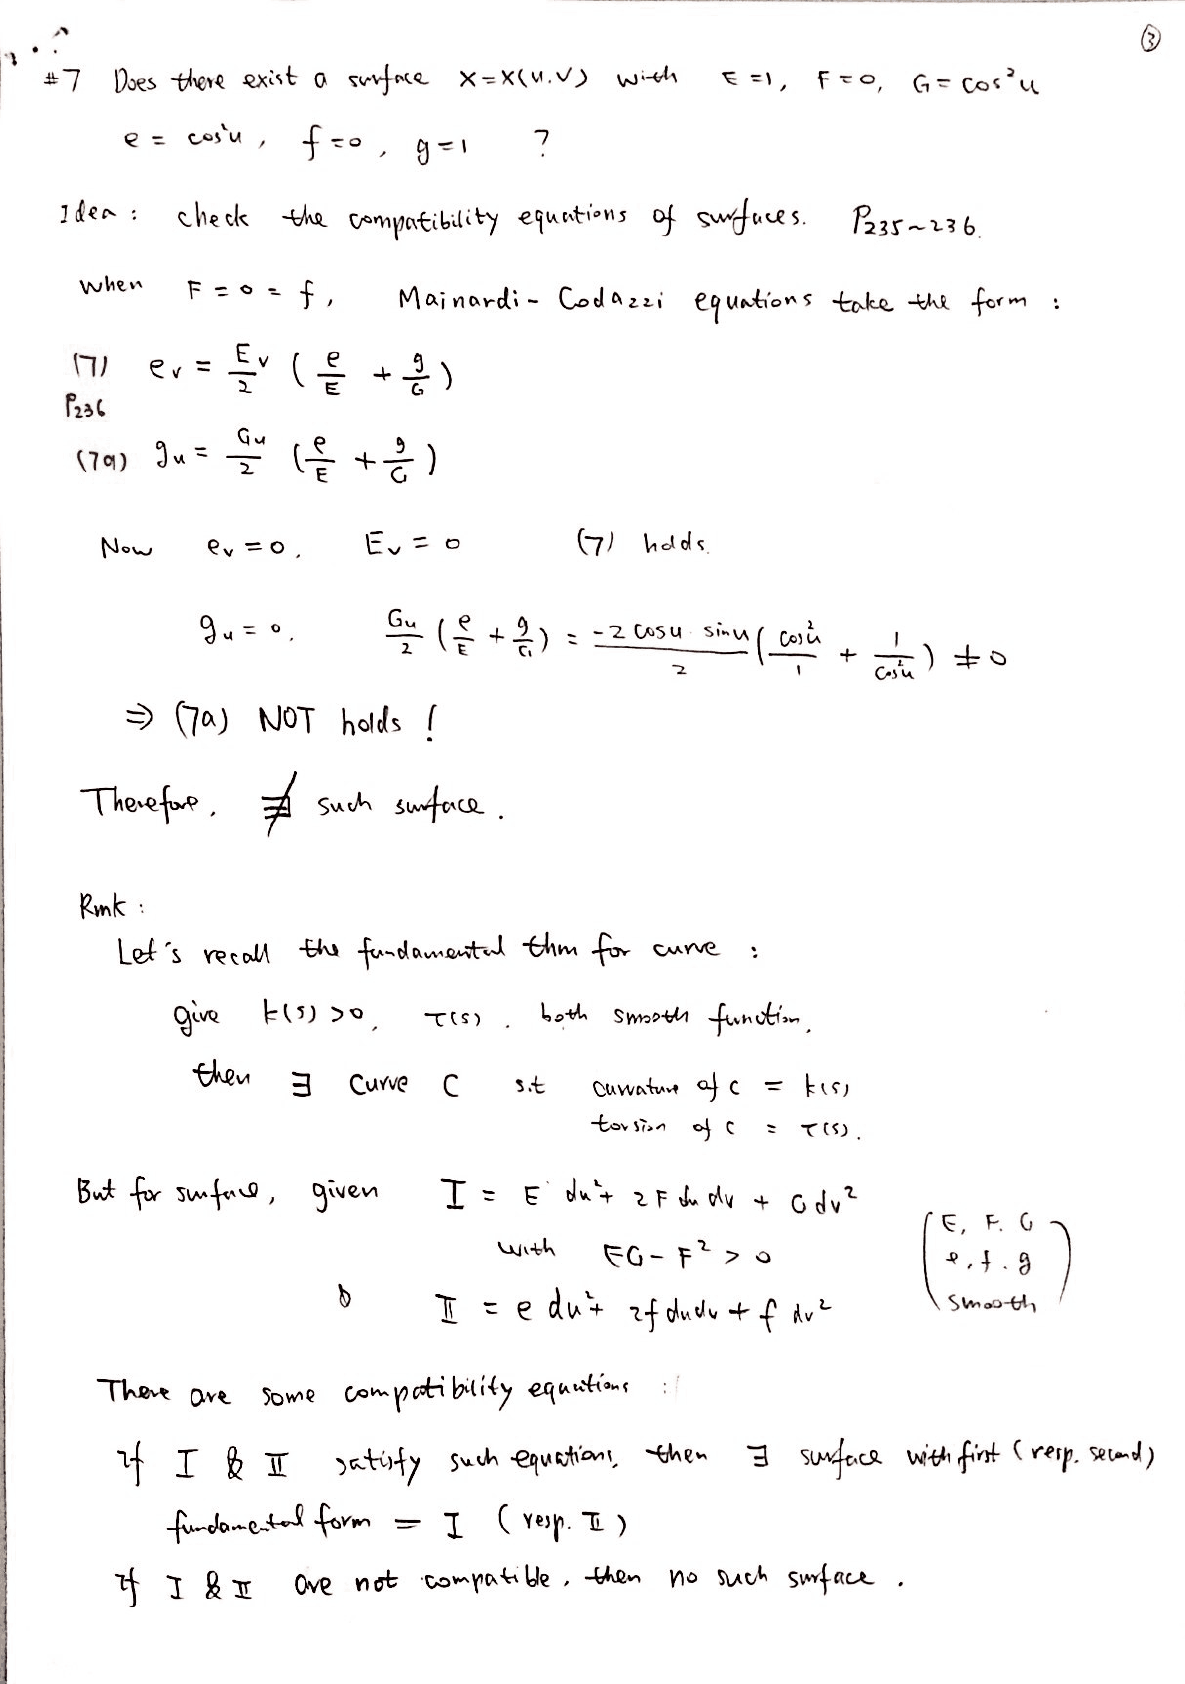 ③
#7 Does there exist a surface X=X(u.v) with E=1, F=0, G=cos²u
e = cos²u, f=0, g=1 ?
Idea: check the compatibility equations of surfaces. P235~236.
When F=0=f, Mainardi-Codazzi equations take the form:
(7) e_v = E_v/2 (e/E + g/G)
P236
(7a) g_u = G_u/2 (e/E + g/G)
Now e_v=0, E_v=0 (7) holds.
g_u=0, G_u/2 (e/E + g/G) = -2cosu·sinu/2 (cos²u/1 + 1/cos²u) ≠0
⇒ (7a) NOT holds!
Therefore, ∄ such surface.
Rmk:
Let's recall the fundamental thm for curve:
give k(s)>0, τ(s). both smooth function,
then ∃ curve C s.t curvature of c = k(s)
torsion of c = τ(s).
But for surface, given I = E du²+ 2F du dv + G dv²
with EG-F²>0
& II = e du²+ 2f dudv + f dv²
(E, F. G
e, f. g
smooth)
There are some compatibility equations:
if I & II satisfy such equations, then ∃ surface with first (resp. second)
fundamental form = I (resp. II)
If I & II are not compatible, then no such surface.